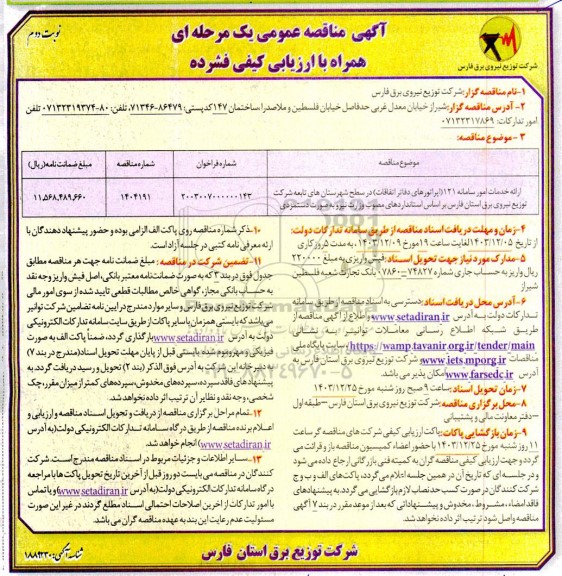 آگهی مناقصه عمومی یک مرحله ای
همراه با ارزیابی کیفی فشرده
نوبت دوم
شرکت توزیع نیروی برق فارس
۱-نام مناقصه گزار: شرکت توزیع نیروی برق فارس
۲- آدرس مناقصه گزار: شیراز خیابان معدل غربی حدفاصل خیابان فلسطین و ملاصدرا، ساختمان ۱۴۷ کدپستی: ۸۶۴۷۹-۷۱۳۴۶، تلفن: ۸۰-۰۷۱۳۲۳۱۹۳۷۴ تلفن
امور تدارکات: ۰۷۱۳۲۳۱۷۸۶۹
۳- موضوع مناقصه:
موضوع مناقصه
شماره فراخوان
شماره مناقصه
مبلغ ضمانت نامه (ریال)
ارائه خدمات امور سامانه ۱۲۱ (اپراتورهای دفاتر اتفاقات) در سطح شهرستان های تابعه شرکت
توزیع نیروی برق استان فارس بر اساس استانداردهای مصوب وزارت نیرو به صورت دستمزدی
۲۰۰۳۰۰۷۰۰۰۰۰۰۱۴۳
۱۴۰۴۱۹۱
۱۱,۵۶۸,۴۸۹,۶۶۰
۴- زمان و مهلت دریافت اسناد مناقصه از طریق سامانه تدارکات دولت:
از تاریخ ۱۴۰۳/۱۲/۰۵ لغایت ساعت ۱۹ مورخ ۱۴۰۳/۱۲/۰۹ به مدت ۵ روز کاری
۵- مدارک مورد نیاز جهت تحویل اسناد: فیش واریزی به مبلغ ۲۲۰۰۰۰
ریال واریز به حساب جاری شماره ۷۴۸۲۷-۰۷۸۶۰ بانک تجارت شعبه فلسطین
شیراز
۶-آدرس محل دریافت اسناد: دسترسی به اسناد مناقصه از طریق سامانه
تدارکات دولت به آدرس www.setadiran.ir و اطلاع از آگهی مناقصه از
طریق شبکه اطلاع رسانی معاملات توانیر به نشانی
https://wamp.tavanir.org.ir/tender/main، سایت پایگاه ملی
مناقصات www.iets.mporg.ir شرکت توزیع نیروی برق استان فارس به
آدرس www.farsedc.ir امکان پذیر می باشد.
۷-زمان تحویل اسناد: ساعت ۹ صبح روز شنبه مورخ ۱۴۰۳/۱۲/۲۵
۸- محل برگزاری مناقصه: شرکت توزیع نیروی برق استان فارس –طبقه اول
–دفتر معاونت مالی و پشتیبانی
۹-زمان بازگشایی پاکات: پاکت ارزیابی کیفی شرکت های مناقصه گر ساعت
۱۱ روز شنبه مورخ ۱۴۰۳/۱۲/۲۵ با حضور اعضاء کمیسیون مناقصه باز و قرائت می
گردد و جهت ارزیابی کیفی مناقصه گران به کمیته فنی بازرگانی ارجاع داده می شود
و در جلسه ای که تاریخ آن در همین جلسه اعلام می گردد، پاکت های الف و ب و ج
شرکت کنندگان در صورت کسب حد نصاب لازم بازگشایی می گردد. به پیشنهادهای
فاقد امضاء، مشروط، مخدوش و پیشنهاداتی که بعد از موعد مقرر در بند ۷ آگهی
مناقصه واصل شود ترتیب اثر داده نخواهد شد.
۱۰-ذکر شماره مناقصه روی پاکت الف الزامی بوده و حضور پیشنهاد دهندگان با
ارئه معرفی نامه کتبی در جلسه آزاد است.
۱۱- تضمین شرکت در مناقصه: مبلغ ضمانت نامه جهت هر مناقصه مطابق
جدول فوق در بند ۳ که به صورت ضمانت نامه معتبر بانکی، اصل فیش واریز وجه نقد
به حساب بانکی مجاز، گواهی خالص مطالبات قطعی تایید شده از سوی امور مالی
شرکت توزیع نیروی برق فارس و سایر موارد مندرج در آیین نامه تضامین شرکت توانیر
می باشد که بایستی همزمان با سایر پاکات از طریق سایت سامانه تدارکات الکترونیکی
دولت به آدرس www.setadiran.ir بارگذاری گردد، ضمناً پاکت الف به صورت
فیزیکی و مهر و موم شده بایستی قبل از پایان مهلت تحویل اسناد (مندرج در بند ۷)
به آدرس فوق الذکر (بند ۲) تحویل و رسید دریافت گردد. به
پیشنهاد های فاقد سپرده، سپرده های مخدوش، سپرده های کمتر از میزان مقرر، چک
شخصی، وجه نقد و نظایر آن ترتیب اثر داده نخواهد شد.
۱۲-تمام مراحل برگزاری مناقصه از دریافت و تحویل اسناد مناقصه و ارزیابی و
اعلام برنده مناقصه از طریق درگاه سامانه تدارکات الکترونیکی دولت (به آدرس
www.setadiran.ir) انجام خواهد شد.
۱۳- سایر اطلاعات و جزئیات مربوط در اسناد مناقصه مندرج است. شرکت
کنندگان در مناقصه می بایست دو روز قبل از آخرین تاریخ تحویل پاکت ها با مراجعه
در گاه سامانه تدارکات الکترونیکی دولت (به آدرس www.setadiran.ir) و یا تماس
با امور تدارکات از آخرین اصلاحات احتمالی اسناد مطلع گردند در غیر این صورت
مسئولیت عدم رعایت این بند به عهده مناقصه گران می باشد.
شرکت توزیع برق استان فارس
شناسه آگهی: ۱۸۸۴۲۳۰